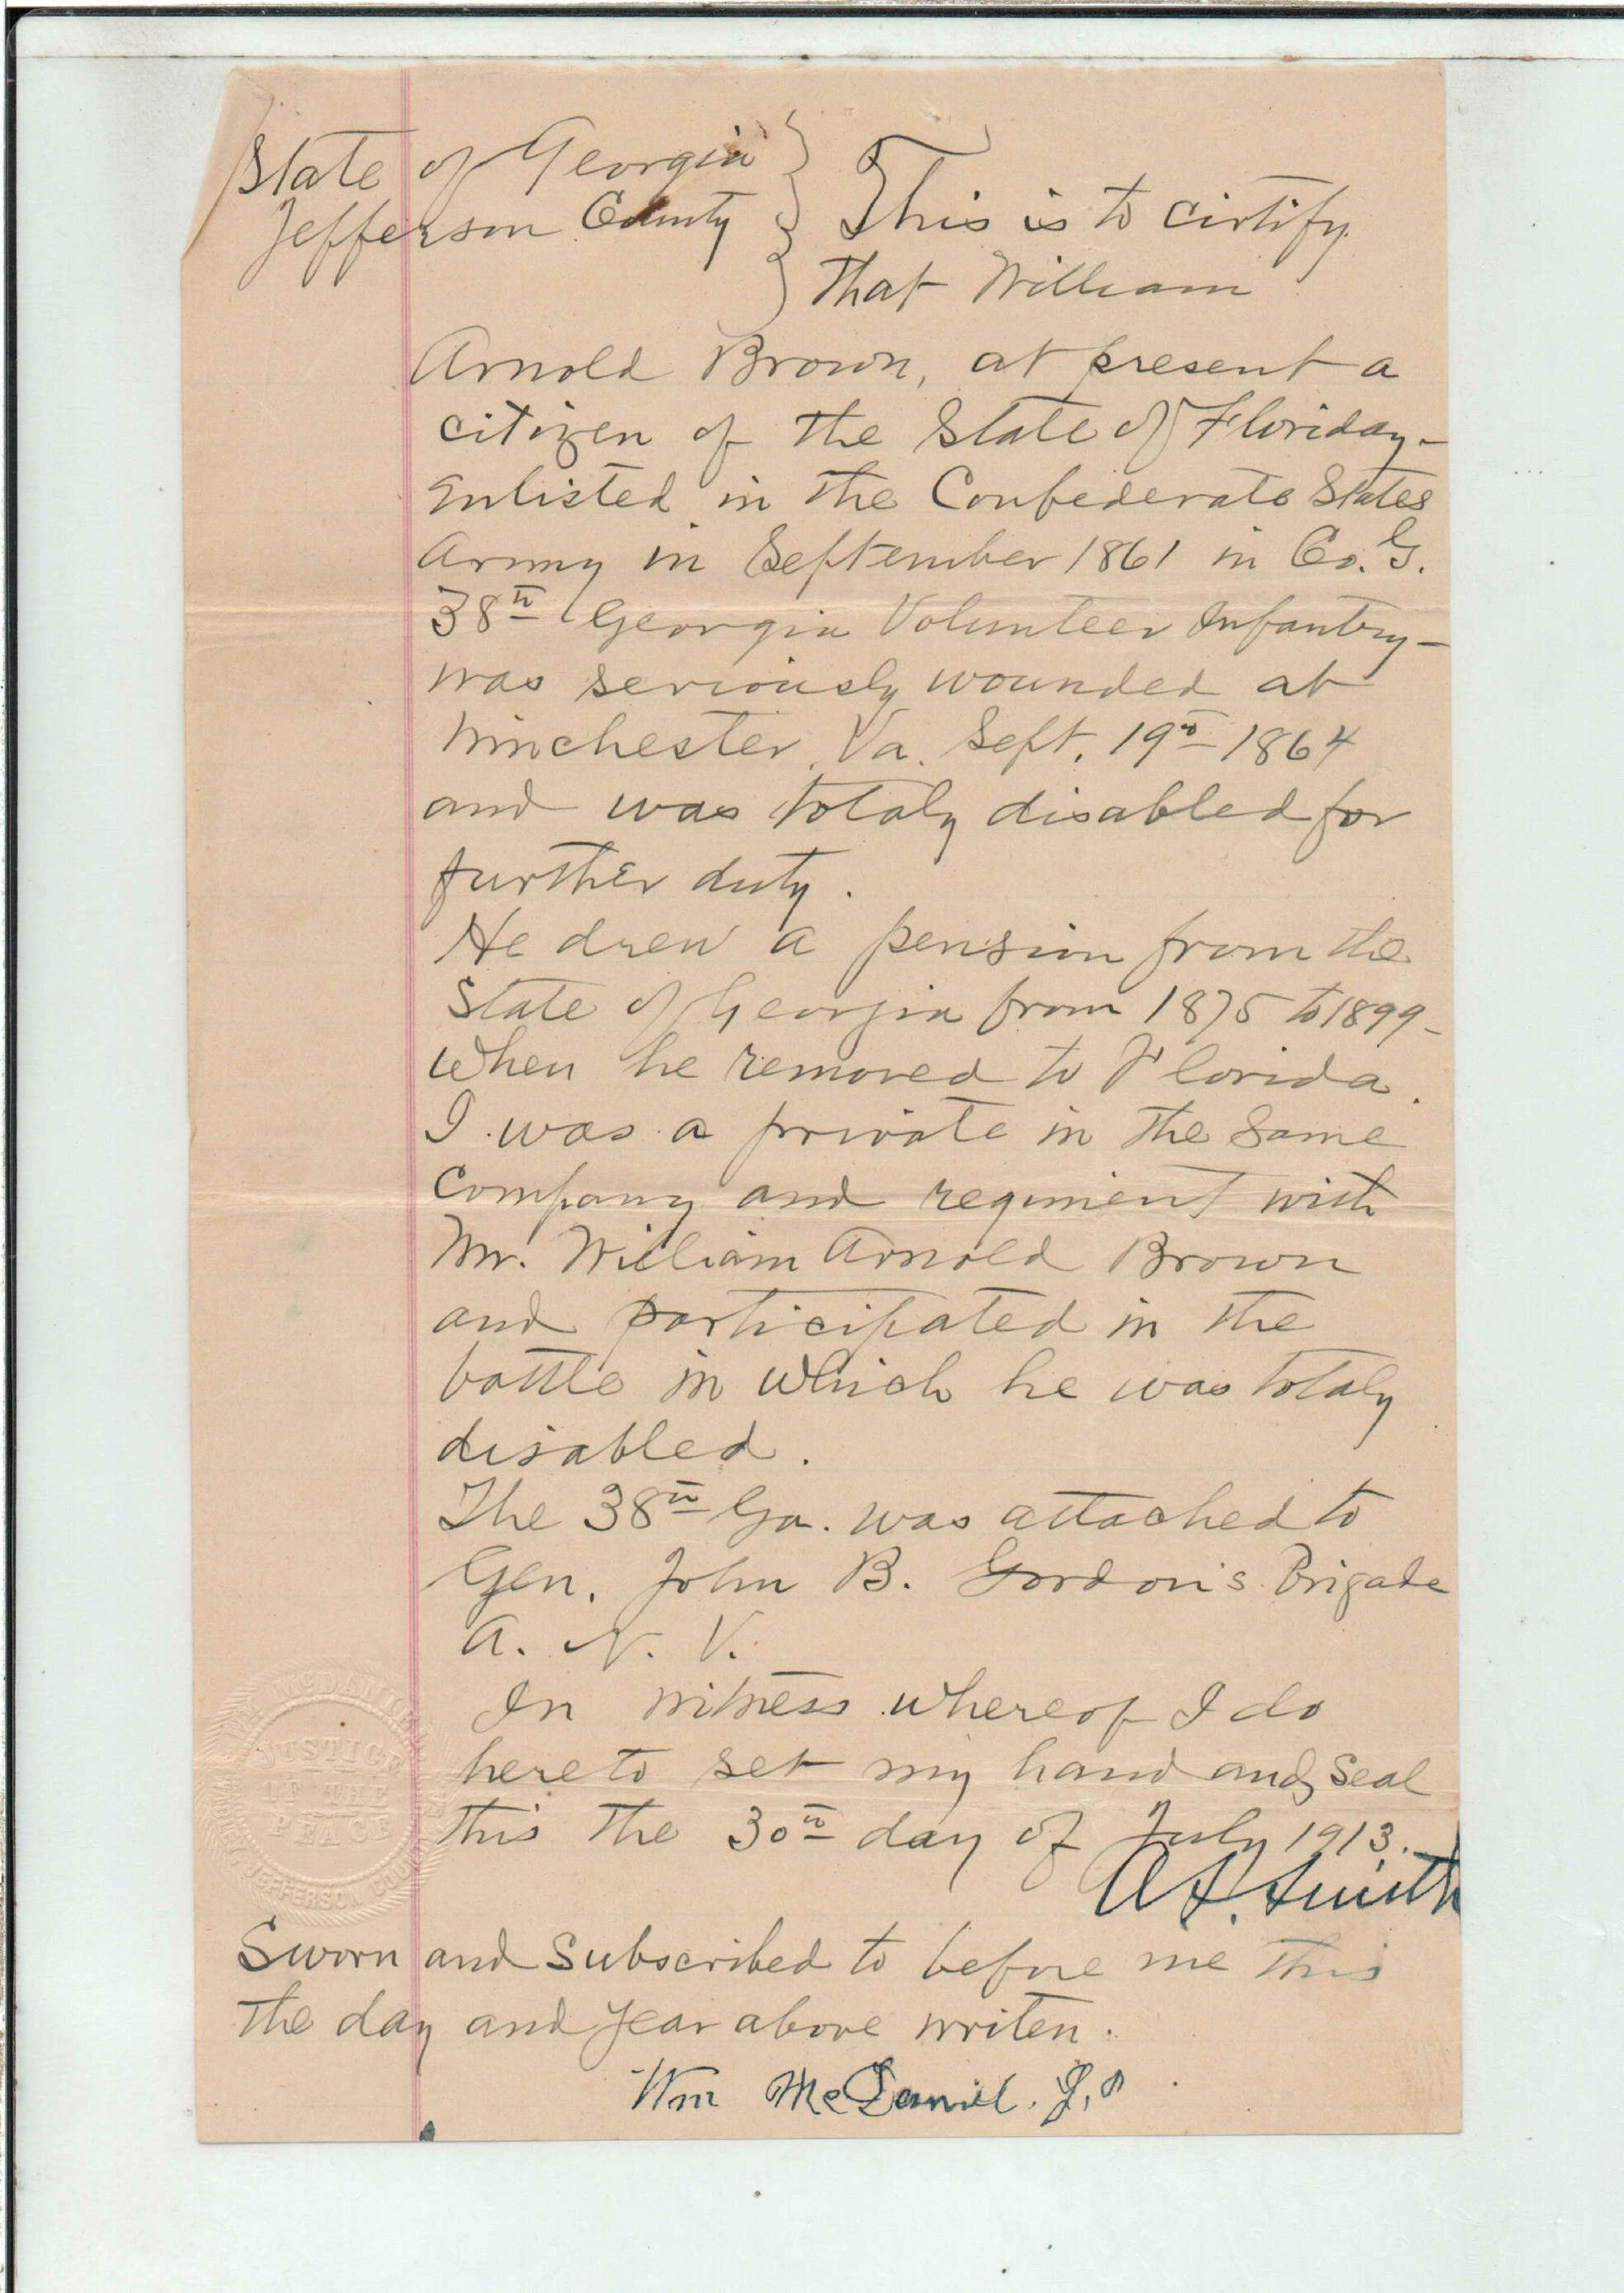 State of Georgia } This is to cirtify
Jefferson County } that William
Arnold Brown, at present a
citizen of the State of Floriday -
Enlisted in the Confederate States
Army in September 1861 in Co. G.
38th Georgia Volunteer Infantry -
was seriously wounded at
Winchester, Va. Sept. 19th 1864
and was totaly disabled for
further duty.
He drew a pension from the
State of Georgia from 1875 to 1899 -
when he removed to Florida.
I was a private in the same
Company and regiment with
Mr. William Arnold Brown
and participated in the
battle in which he was totaly
disabled.
The 38th Ga. was attached to
Gen. John B. Gordon's Brigade
A. N. V.
In witness whereof I do
here to set my hand and seal
this the 30th day of July 1913.
Smith
Sworn and Subscribed to before me this
the day and year above writen.
Wm McDaniel. J.P
McDANIEL
JUSTICE
OF THE
PEACE
JEFFERSON COUNTY